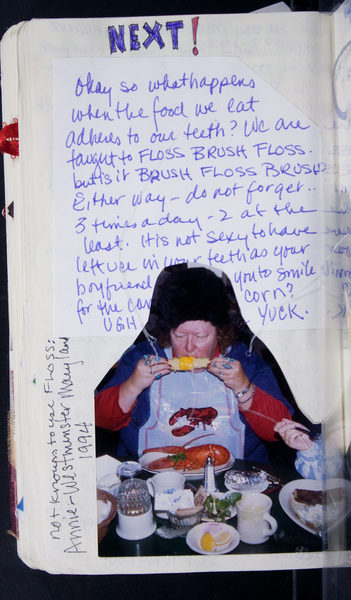 NEXT!
Okay so what happens
when the food we eat
adheres to our teeth? We are
taught to FLOSS BRUSH FLOSS.
but is it BRUSH FLOSS BRUSH?
Either way - do not forget..
3 times a day - 2 at the
least. It is not sexy to have
lettuce in your teeth as your
boyfriend you to smile
for the corn?
UGH YUCK.
not known to use FLOSS:
Annie - Westminster Maryland
1994